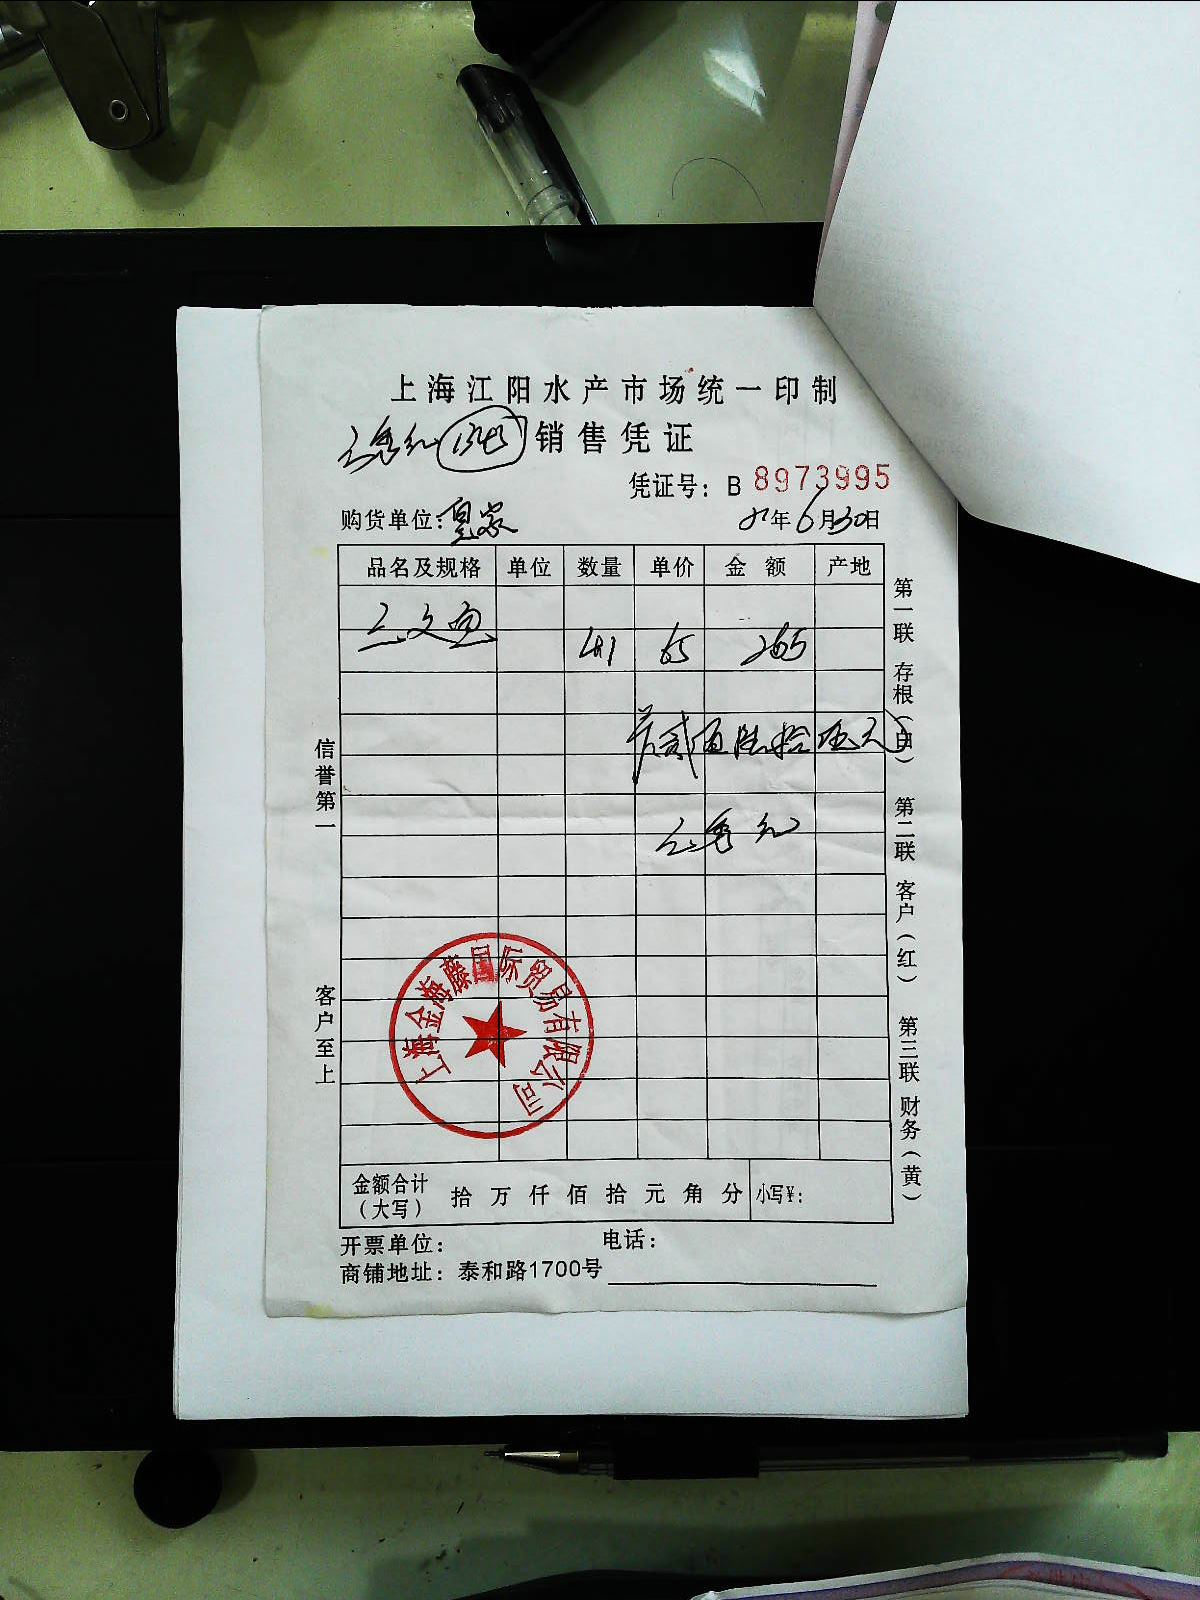 上海江阳水产市场统一印制
销售凭证
凭证号：B 8973995
购货单位：皇家
年6月30日
品名及规格 单位 数量 单价 金额 产地
三文鱼
65 265
贰佰陆拾伍元
信誉第一
客户至上
第一联 存根（白）
第二联 客户（红）
第三联 财务（黄）
上海金海藤国际贸易有限公司
金额合计（大写） 拾 万 仟 佰 拾 元 角 分 小写¥：
开票单位： 电话：
商铺地址：泰和路1700号